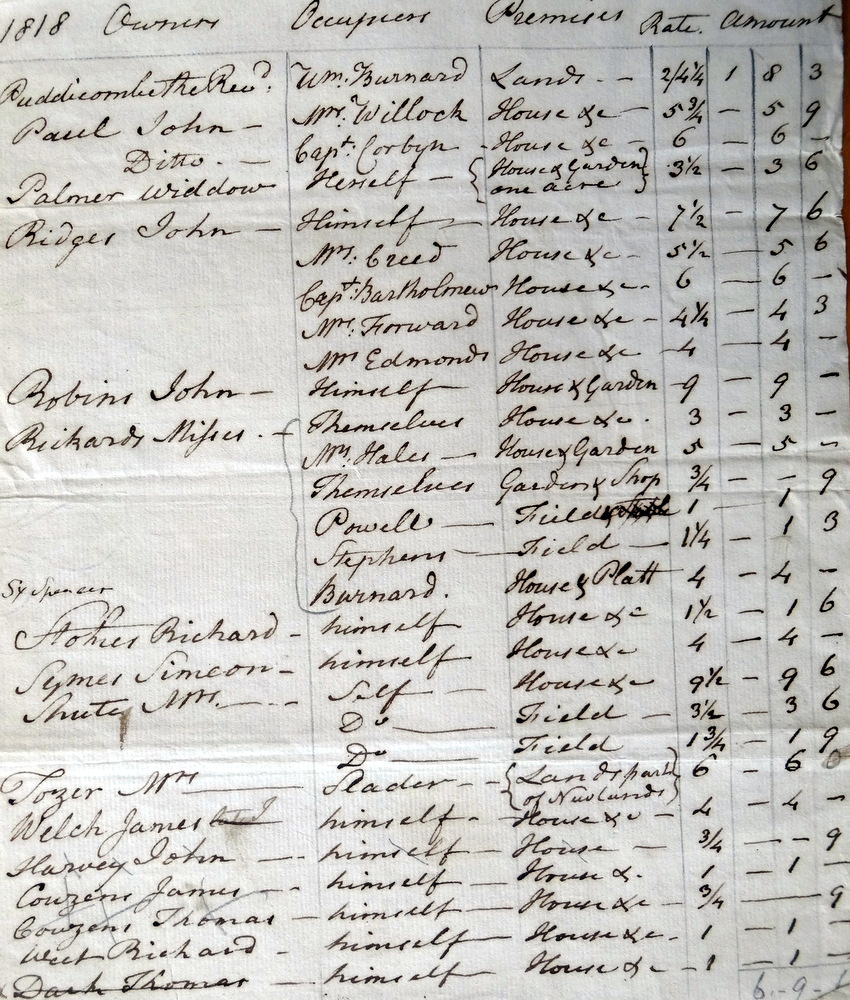 1818 Owners Occupiers Premises Rate. Amount
Puddicombe the Revd. Wm. Burnard Lands - - 2/4¼ 1 8 3
Paul John - Mr. Willock House &c - 5¾ - 5 9
Ditto. - Capt. Corbyn - House &c - 6 - 6 -
Palmer Widdow Herself - { House & Garden one acre } 3½ - 3 6
Ridges John - Himself - House &c - 7½ - 7 6
Mrs. Creed House &c - 5½ - 5 6
Capt. Bartholmew House &c - 6 - 6 -
Mrs. Forward House &c - 4¼ - 4 3
Mrs Edmonds House &c - 4 - 4 -
Robins John - Himself House & Garden - 9 - 9 -
Rickards Misses - Themselves House &c. 3 - 3 -
Mrs. Hales - House & Garden 5 - 5 -
Themselves Garden & Shop ¾ - - 9
Powell - Field 1 - 1 -
Stephens - Field - 1¼ - 1 3
Burnard. House & Platt 4 - 4 -
Sy Spencer
Stokes Richard - himself House &c 1½ - 1 6
Symes Simeon - himself House &c 4 - 4 -
Shute Mrs. - Self - House &c 9½ - 9 6
Do - Field - 3½ - 3 6
Do - Field 1¾ - 1 9
Tozer Mrs - Slader - - { Lands part of Newlands } 6 - 6 0
Welch James himself - House &c - 4 - 4 -
Harvey John - himself - House - ¾ - - 9
Couzens James - himself - House &. 1 - 1 -
Couzens Thomas - himself - House &c - ¾ - 9
West Richard - himself - House &c - 1 - 1 -
Dark Thomas - himself - House &c - 1 - 1 -
6 - 9 -